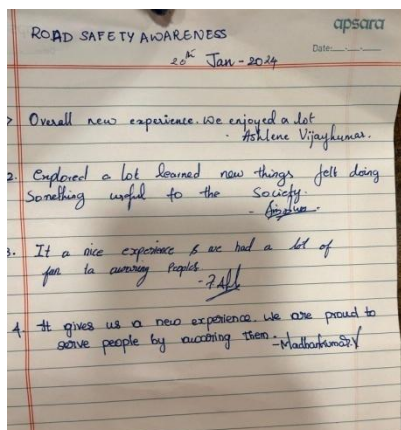 apsara
ROAD SAFETY AWARENESS
Date:
20th Jan - 2024
Overall new experience. We enjoyed a lot
- Ashlene Vijaykumar.
2. Explored a lot learned new things felt doing
Something useful to the Society.
3. It a nice experience & we had a lot of
fun to awaring Peoples
4. It gives us a new experience. We are proud to
serve people by awaring them - Madhankumar.V